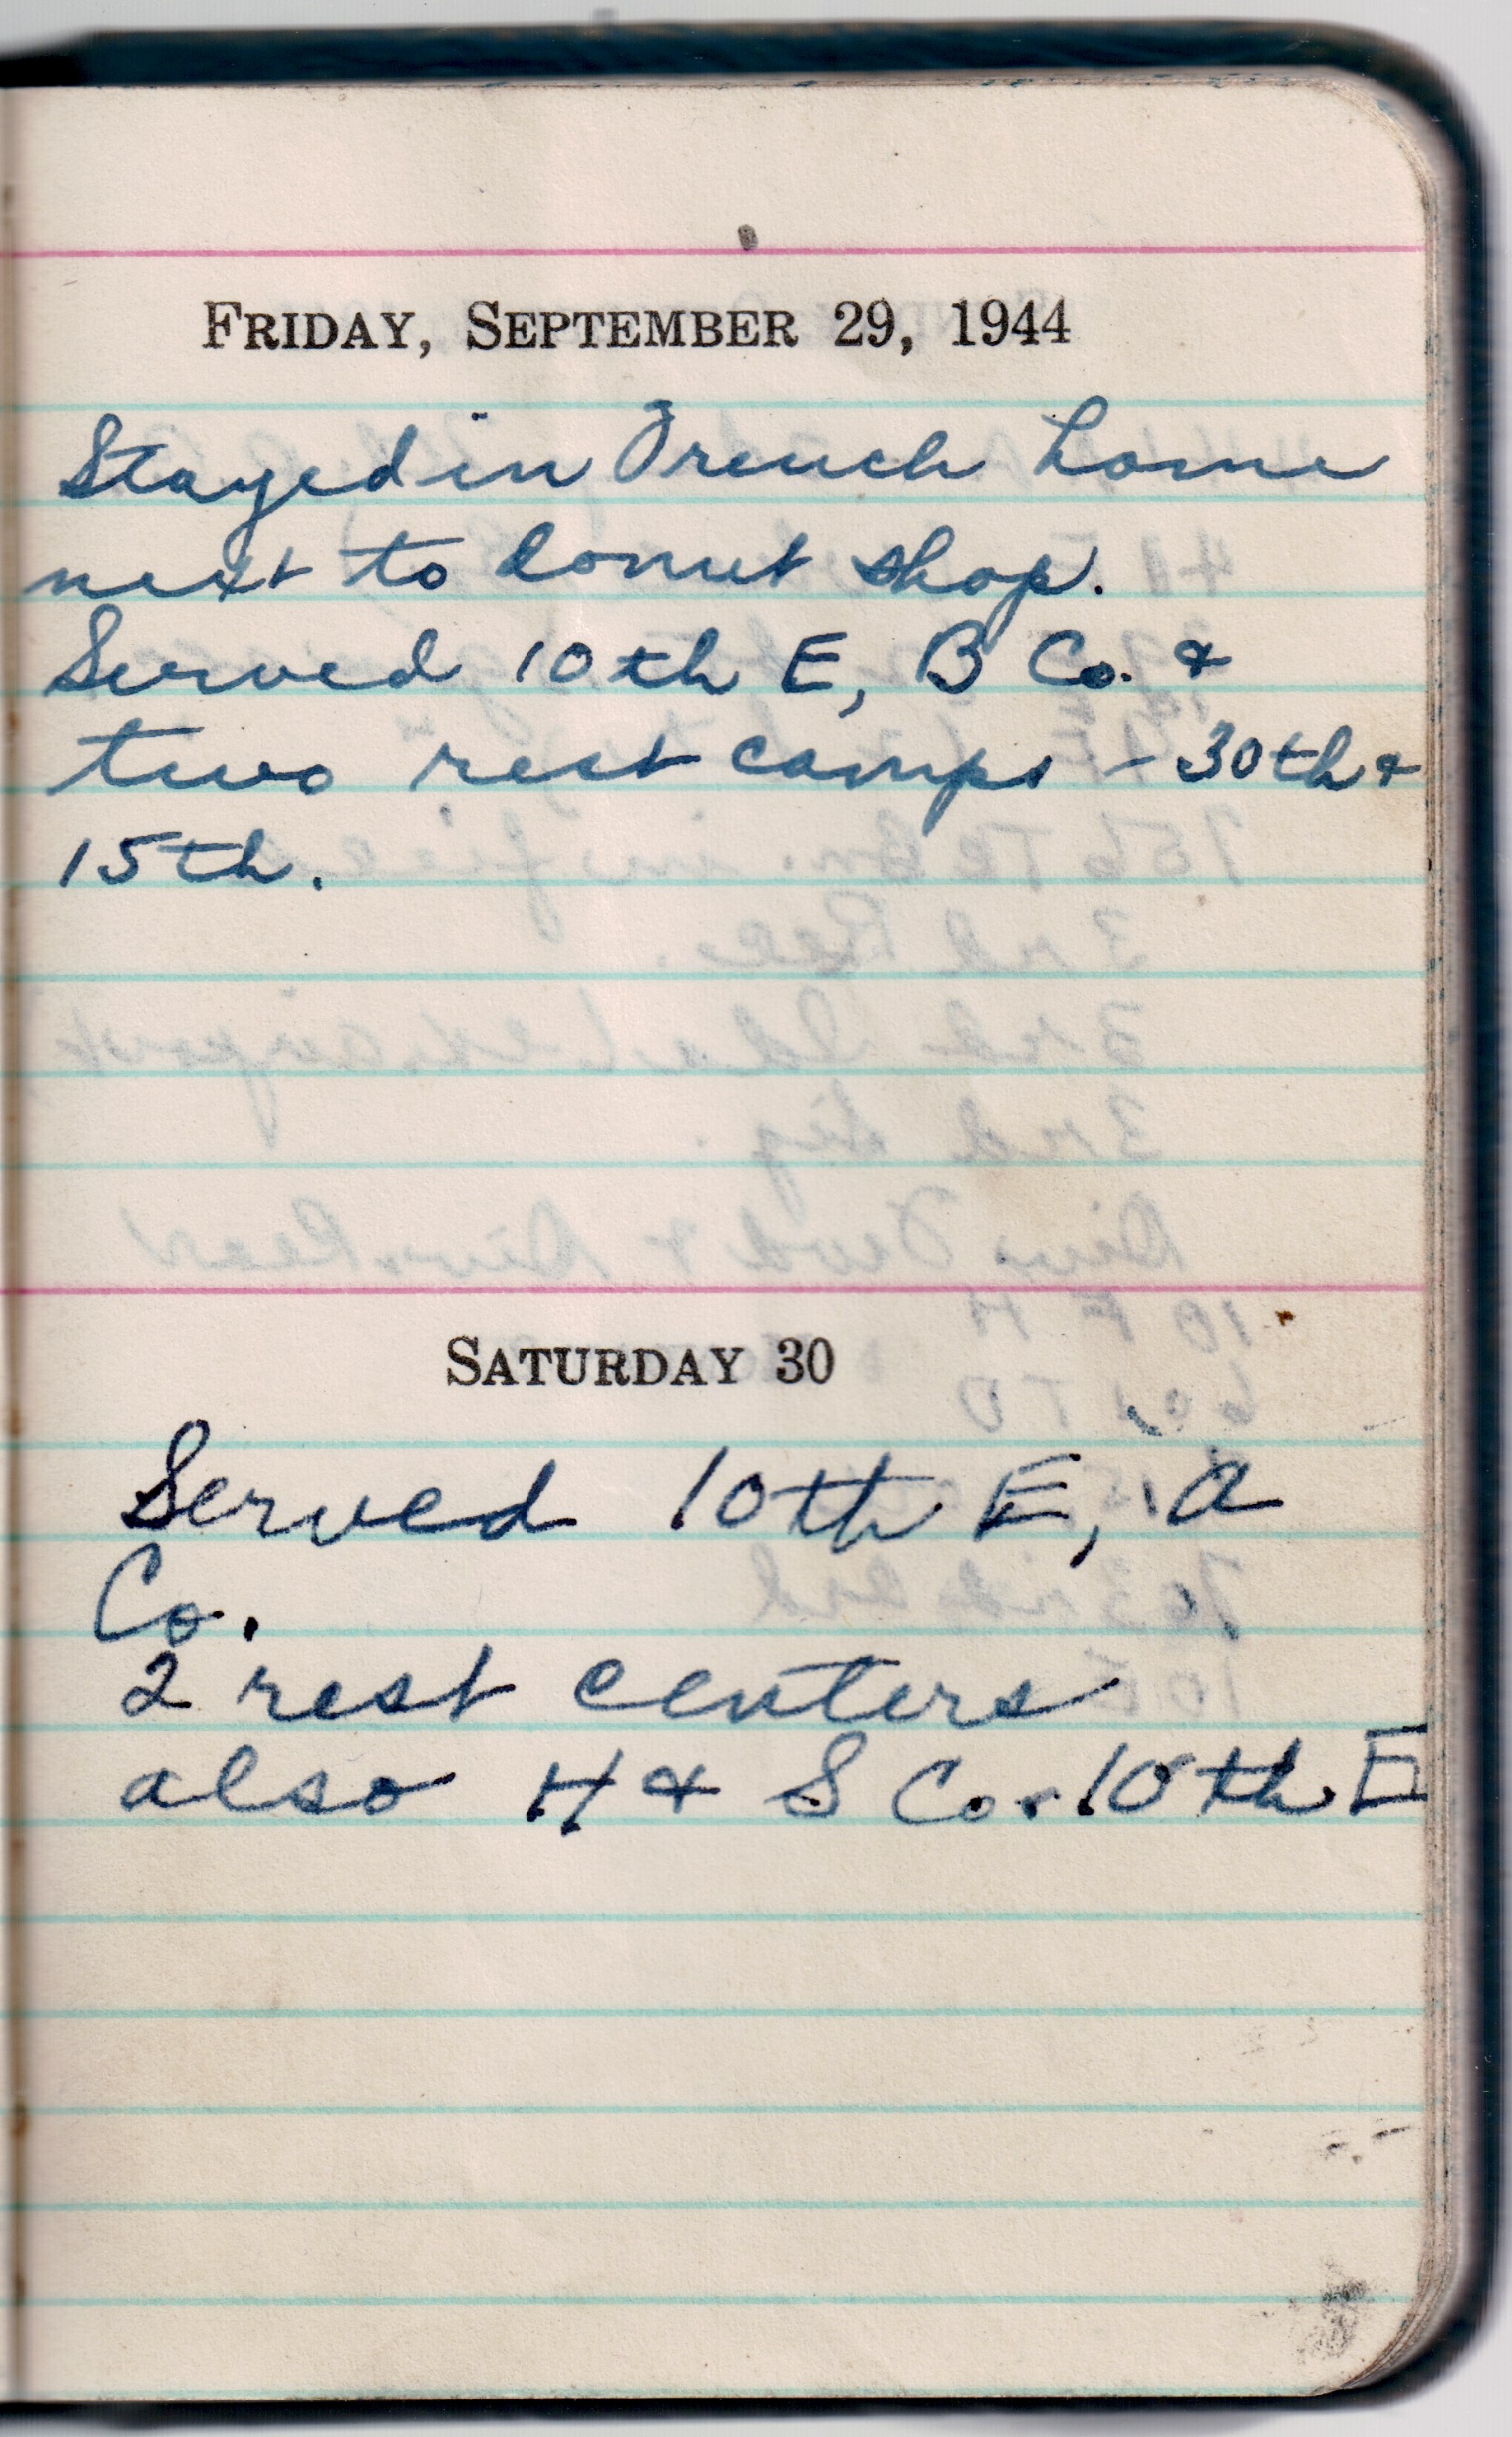 FRIDAY, SEPTEMBER 29, 1944
Stayed in French home
next to donut shop.
Served 10th E, B Co. &
two rest camps - 30th &
15th.
SATURDAY 30
Served 10th E, A
Co.
2 rest centers
also H & S Co. 10th E